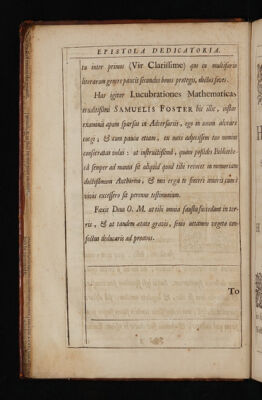 EPISTOLA DEDICATORIA.
tu inter primos (Vir Clarissime) qui in multifario
literarum genere paucis secundus bonos protegis, doctos foves.
Has igitur Lucubrationes Mathematicas
eruditissimi SAMUELIS FOSTER hic illic, instar
examinis apum sparsas in Adversariis, ego in unum alveare
coegi; & cum paucis etiam, ex meis adjectis tuo nomini
consecratas volui: ut instructissimâ, quam possides Bibliothe-
câ semper ad manus sit aliquid quod tibi revocet in memoriam
doctissimum Authorem, & mei erga te sinceri amoris cùm è
vivis excessero sit perenne testimonium.
Faxit Deus O. M. ut tibi omnia fausta succedant in ter-
ris, & ut tandem ætate gravis, senio attamen vegeto con-
fectus deducaris ad proavos.
To